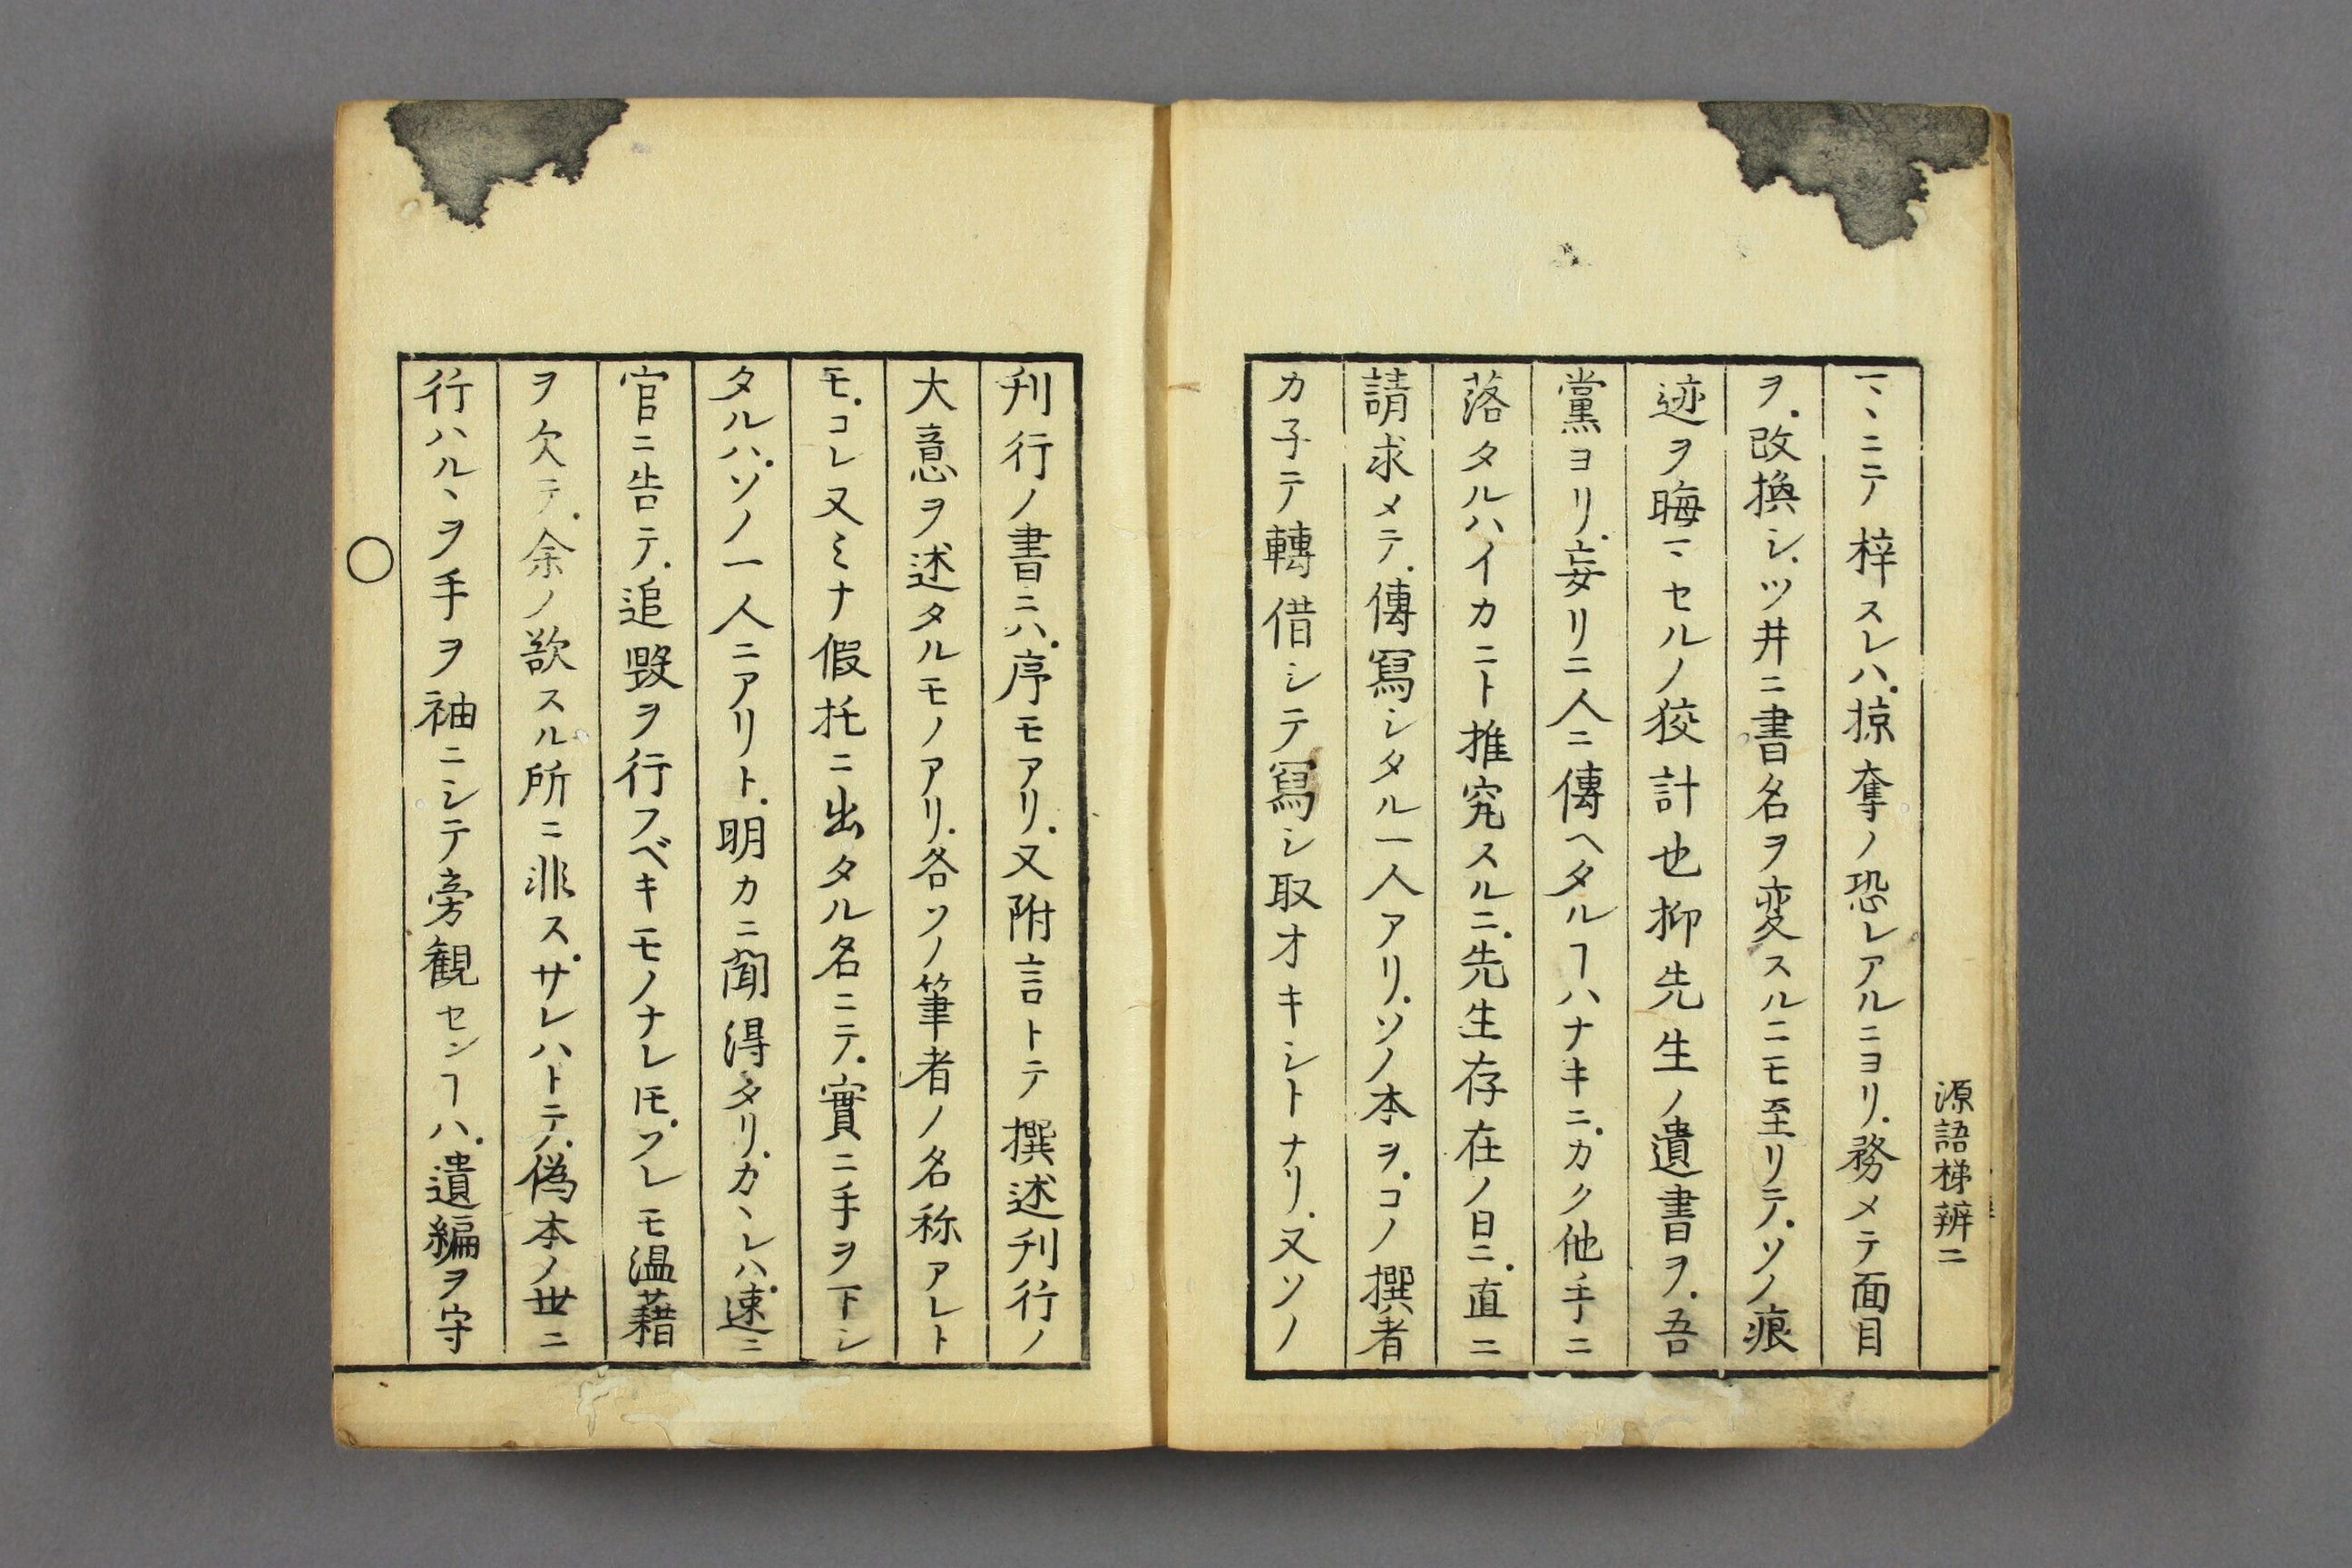 源語梯辨ニ
マヽニテ梓スレハ掠奪ノ恐レアルニヨリ務メテ面目
ヲ改換シツ井ニ書名ヲ変スルニモ至リテソノ痕
迹ヲ晦マセルノ狡計也抑先生ノ遺書ヲ吾
黨ヨリ妄リニ人ニ傳ヘタルヿハナキニカク他手ニ
落タルハイカニト推究スルニ先生存在ノ日ニ直ニ
請求メテ傳寫シタル一人アリソノ本ヲコノ撰者
カ子テ轉借シテ寫シ取オキシトナリ又ソノ
刋行ノ書ニハ序モアリ又附言トテ撰述刋行ノ
大意ヲ述タルモノアリ各ソノ筆者ノ名称アレト
モコレ又ミナ假托ニ出タル名ニテ實ニ手ヲ下シ
タルハソノ一人ニアリト明カニ聞得タリカヽレハ速ニ
官ニ告テ追毀ヲ行フベキモノナレ𪜈フレモ温藉
ヲ欠テ余ノ欲スル所ニ非スサレハトテ偽本ノ世ニ
行ハルヽヲ手ヲ袖ニシテ旁観センヿハ遺編ヲ守